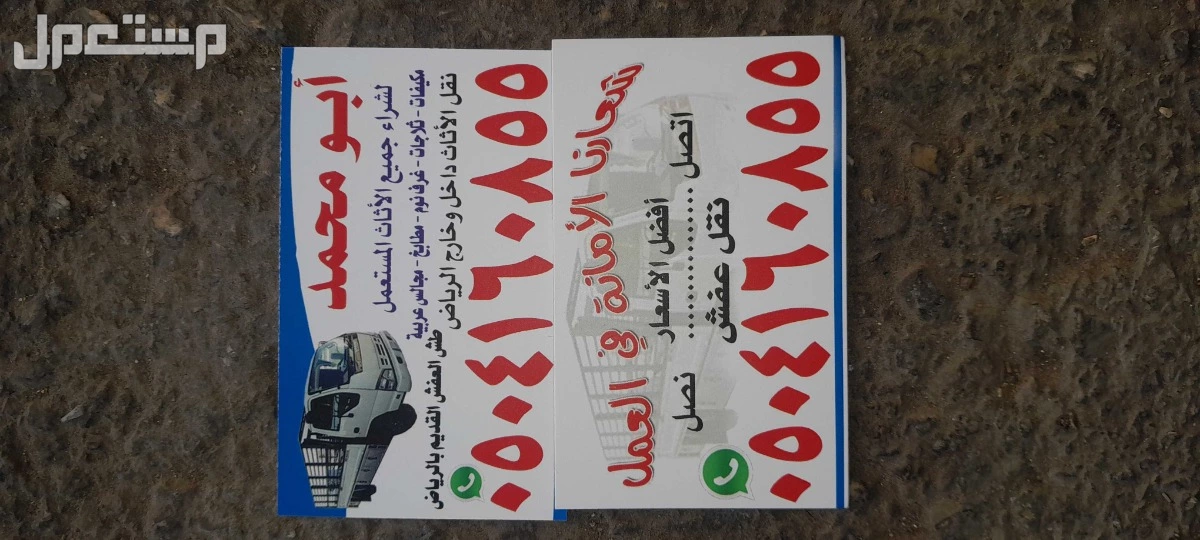 مستعمل
أبو محمد
لشراء جميع الأثاث المستعمل
مكيفات - ثلاجات - غرف نوم - مطابخ - مجالس عربية
نقل الأثاث داخل وخارج الرياض
طش العفش القديم بالرياض
٠٥٠٤١٦٠٨٥٥
شعارنا الأمانة في العمل
أفضل الأسعار
اتصل .................. نصل
نقل عفش
٠٥٠٤١٦٠٨٥٥